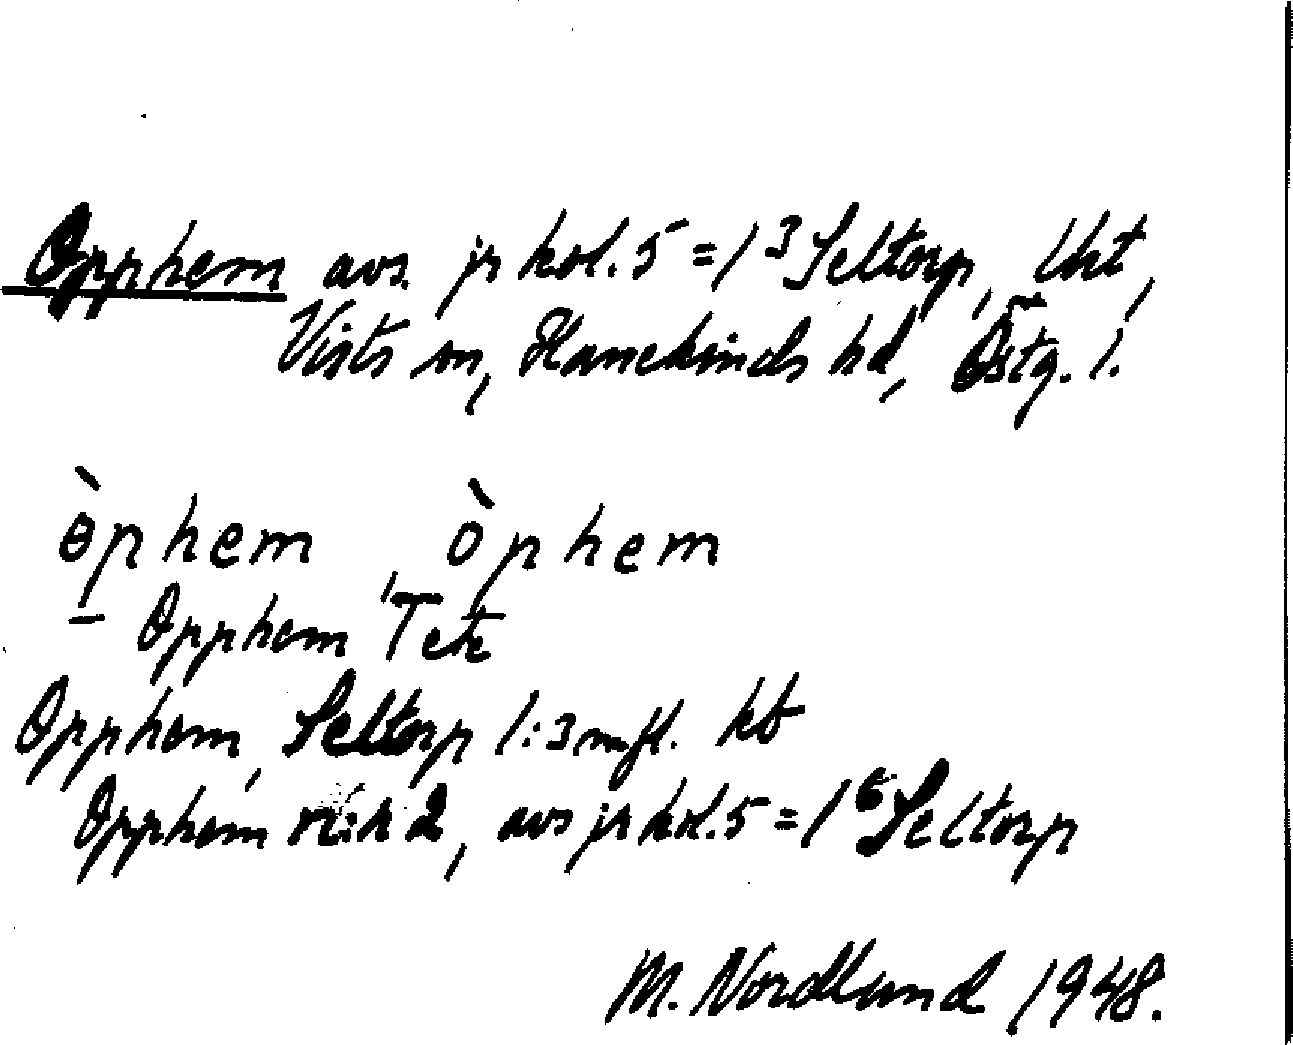 Opphem avs. jr kol. 5 = 1³ Seltorp, Vist,
Vists sn, Hanekinds hd, Östg. l.
òphem, òphem
– Opphem Tck
Opphem, Seltorp 1:3 mfl. kb
Opphem nr 2, avs jr kol. 5 = 1⁶ Seltorp
M. Nordlund 1948.